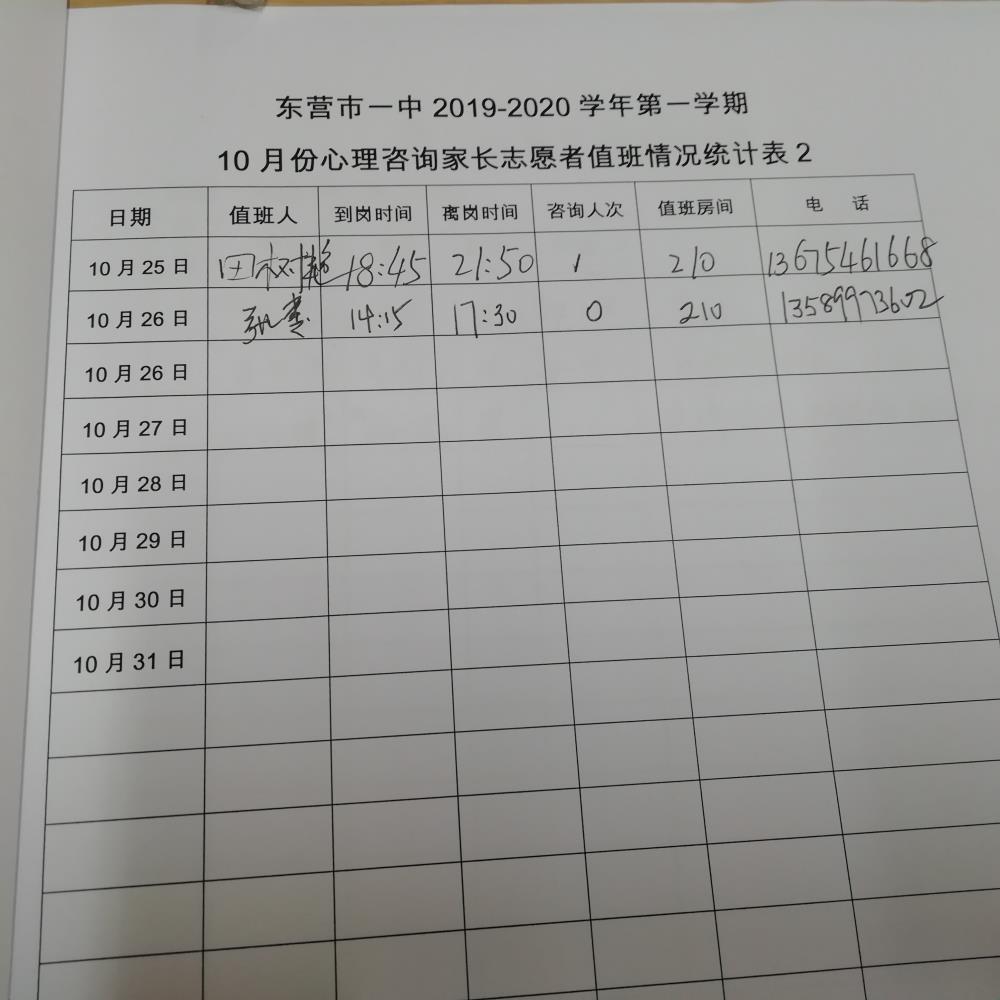 东营市一中 2019-2020 学年第一学期
10 月份心理咨询家长志愿者值班情况统计表 2
日期 值班人 到岗时间 离岗时间 咨询人次 值班房间 电 话
10 月 25 日 田树艳 18:45 21:50 1 210 13675461668
10 月 26 日 14:15 17:30 0 210 13589973602
10 月 26 日
10 月 27 日
10 月 28 日
10 月 29 日
10 月 30 日
10 月 31 日